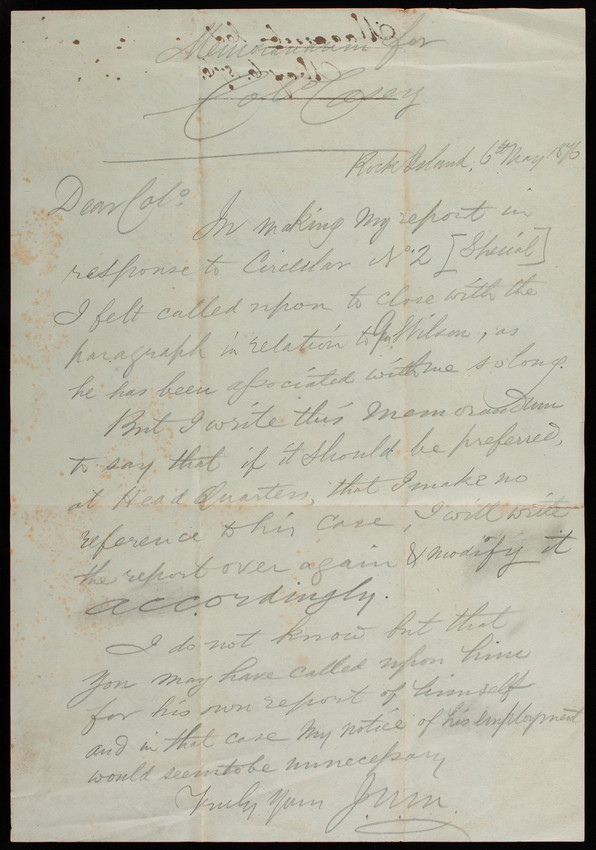 Memorandum for
Col. Casey
Rock Island, 6th May 1876
Dear Col.
In making my report in
response to Circular No. 2 [Special]
I felt called upon to close with the
paragraph in relation to Wilson, as
he has been associated with me so long.
But I write this Memorandum
to say that if it should be preferred,
at Head Quarters, that I make no
reference to his case, I will write
the report over again & modify it
accordingly.
I do not know but that
you may have called upon him
for his own report of himself
and in that case my notice of his employment
would seem to be unnecessary
Truly Yours